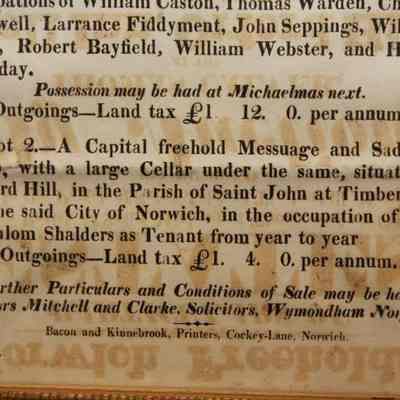 pations of William Caston, Thomas Warden, Ch
well, Larrance Fiddyment, John Seppings, Wil
, Robert Bayfield, William Webster, and H
day.
Possession may be had at Michaelmas next.
Outgoings—Land tax £1. 12. 0. per annum
ot 2.—A Capital freehold Messuage and Sad
, with a large Cellar under the same, situat
rd Hill, in the Parish of Saint John at Timber
he said City of Norwich, in the occupation of
lom Shalders as Tenant from year to year
Outgoings—Land tax £1. 4. 0. per annum.
rther Particulars and Conditions of Sale may be ha
rs Mitchell and Clarke, Solicitors, Wymondham Nor
Bacon and Kinnebrook, Printers, Cockey-Lane, Norwich.